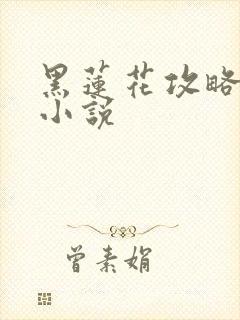 黑蓮花攻略
小說
曾素娟